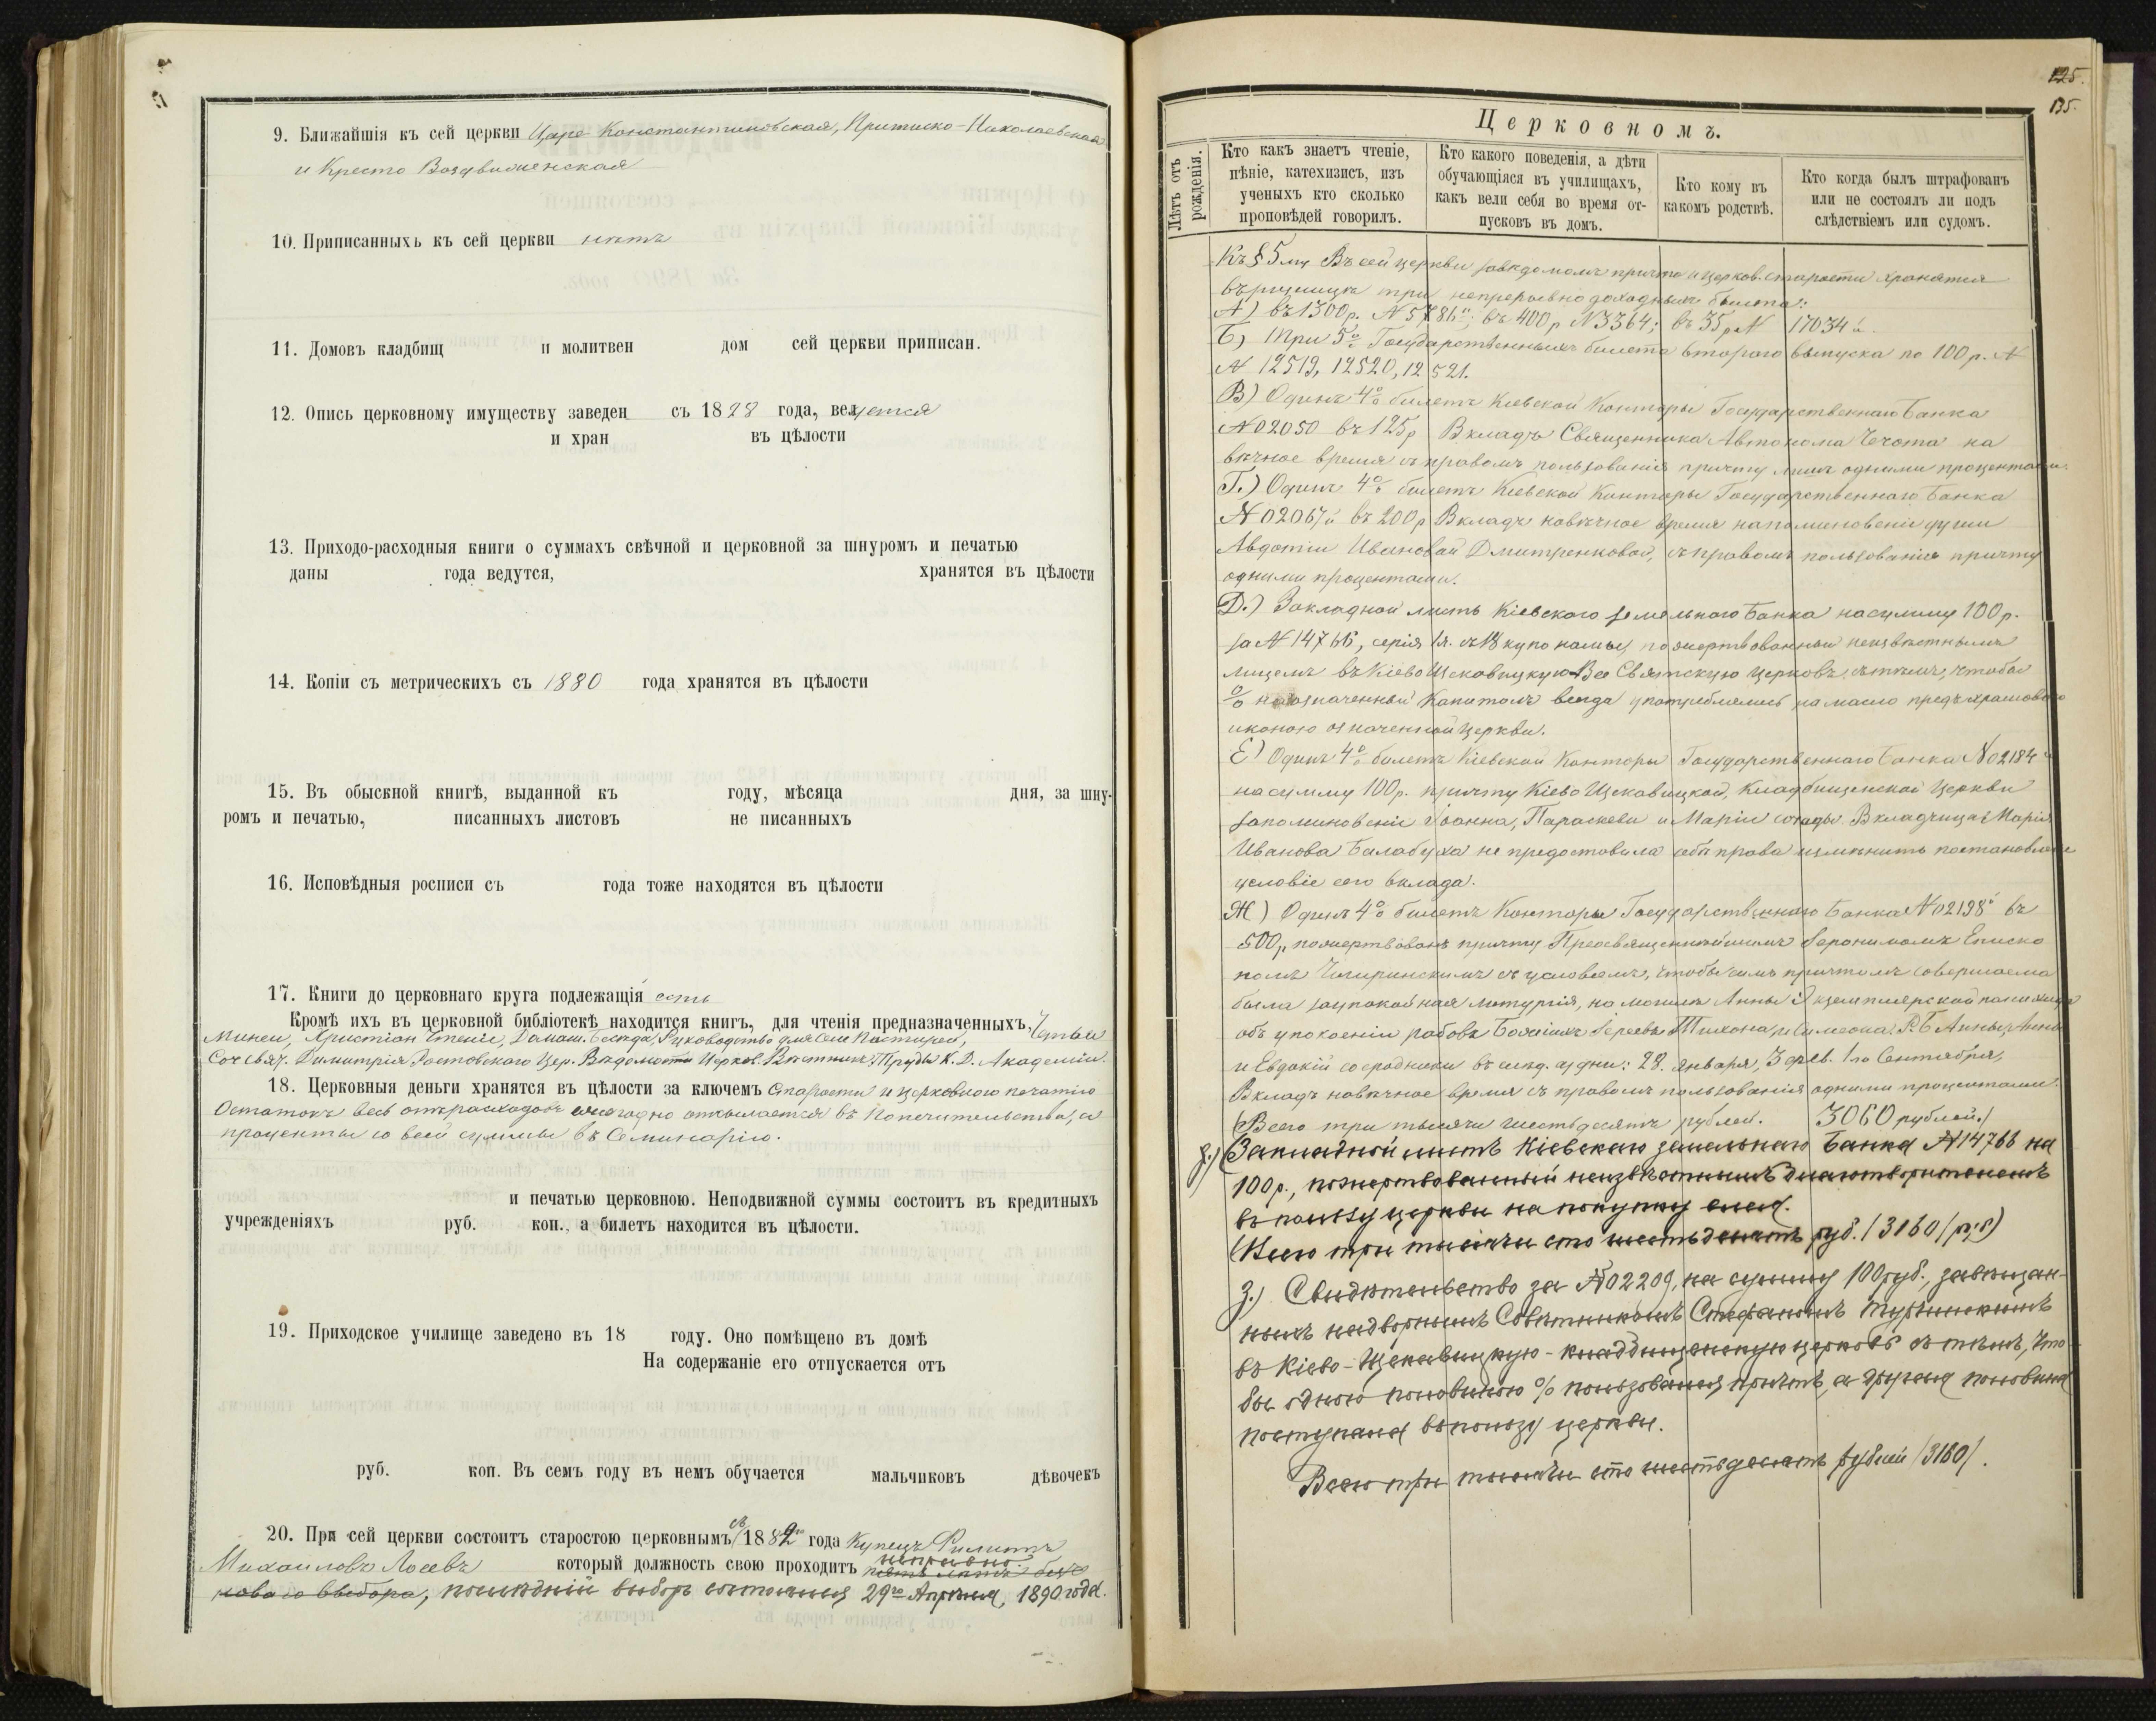 9. Ближайшія къ сей церкви Царе-Константиновская, Притиско-Николаевская
и Кресто Воздвиженская
10. Приписанныхъ къ сей церкви нѣтъ
11. Домовъ кладбищ и молитвен дом сей церкви приписан.
12. Опись церковному имуществу заведен съ 1828 года, ведется
и хран въ цѣлости
13. Приходо-расходныя книги о суммахъ свѣчной и церковной за шнуромъ и печатью
даны года ведутся, хранятся въ цѣлости
14. Копіи съ метрическихъ съ 1880 года хранятся въ цѣлости
15. Въ обыскной книгѣ, выданной къ году, мѣсяца дня, за шну-
ромъ и печатью, писанныхъ листовъ не писанныхъ
16. Исповѣдныя росписи съ года тоже находятся въ цѣлости
17. Книги до церковнаго круга подлежащія есть
Кромѣ ихъ въ церковной библіотекѣ находится книгъ, для чтенія предназначенныхъ, Четьи
Минеи, Христіан Чтеніе, Домаш. Бесѣда, Руководство для Сел Пастырей,
Соч Свят. Димитрія Ростовскаго Цер. Вѣдомости Церков. Вѣстникъ, Труды К. Д. Академіи.
18. Церковныя деньги хранятся въ цѣлости за ключемъ Старосты и церковною печатію
Остатокъ весь отъ расходовъ ежегодно отсылается въ Попечительство, а
проценты со всей суммы въ Семинарію.
и печатью церковною. Неподвижной суммы состоитъ въ кредитныхъ
учрежденіяхъ руб. коп., а билетъ находится въ цѣлости.
19. Приходское училище заведено въ 18 году. Оно помѣщено въ домѣ
На содержаніе его отпускается отъ
руб. коп. Въ семъ году въ немъ обучается мальчиковъ дѣвочекъ
20. При сей церкви состоитъ старостою церковнымъ съ 1882 года Купецъ Филиппъ
Михаиловъ Лосевъ который должность свою проходитъ
новаго выбора, послѣдній выборъ состоялся 29го Апрѣля, 1890 года.
125.
135.
Церковномъ.
Лѣтъ отъ рожденія.
Кто какъ знаетъ чтеніе, пѣніе, катехизисъ, изъ ученыхъ кто сколько проповѣдей говорилъ.
Кто какого поведенія, а дѣти обучающіяся въ училищахъ, какъ вели себя во время отпусковъ въ домъ.
Кто кому въ какомъ родствѣ.
Кто когда былъ штрафованъ или не состоялъ ли подъ слѣдствіемъ или судомъ.
Къ § 5му Въ сей церкви за вѣдомомъ причта и церков. старосты хранятся
въ ризницѣ три непрерывно доходныхъ билета:
А) въ 1300 р. № 5786й; въ 400 р № 3364; въ 35 р № 17034й.
Б) Три 5% Государственныхъ билета втораго выпуска по 100 р. №
№ 12519, 12520, 12521.
В) Одинъ 4% билетъ Кіевской Конторы Государственнаго Банка
№ 02050 въ 125 р Вкладъ Священника Автонома Чехота на
вѣчное время съ правомъ пользованія причту лишь одними процентами.
Г.) Одинъ 4% билетъ Кіевской Конторы Государственнаго Банка
№ 02067й въ 200 р Вкладъ на вѣчное время на поминовеніе души
Авдотіи Ивановой Дмитренковой, съ правомъ пользованія причту
одними процентами.
Д.) Закладной листъ Кіевского Земельного Банка на сумму 100 р.
за № 14766, серія 1я. съ 18 купонами, пожертвованный неизвѣстнымъ
лицемъ въ Кіево Щековицкую Все Святскую церковь, съ тѣмъ, чтобы
% на означенный капиталъ всегда употреблялись на масло предъ храмовою
иконою означенной церкви.
Е) Одинъ 4% билетъ Кіевской Конторы Государственнаго Банка № 02184
на сумму 100 р. причту Кіево Щекавицкой, Кладбищенской Церкви
за поминовеніе Іоанна, Параскевы и Маріи Вкладчица Марія
Иванова Балабуха не предоставила себѣ права измѣнить
условіе сего вклада.
Ж) Одинъ 4% билетъ Конторы Государственнаго Банка № 02198й въ
500 р, пожертвованъ причту Преосвященнѣйшимъ Іеронимомъ Еписко
помъ Чигиринскимъ съ условіемъ, чтобы симъ причтомъ совершаема
была заупокойная литургія, на могилѣ Анны панихида
объ упокоеніи рабовъ Божіихъ Іереевъ Тихона, и Симеона, Р. Б Анны, Анны
и Евдокіи со сродники въ слѣд. дни: 28. января, 3 фев. 1го Сентября,
Вкладъ на вѣчное время съ правомъ пользованія одними процентами.
(Всего три тысячи шестьдесятъ рублей. 3060 рублей.)
З.) (Закладной листъ Кіевскаго земельнаго Банка № 14766 на
100 р., пожертвованный неизвѣстнымъ благотворителемъ
въ пользу церкви на покупку елея.
(Всего три тысячи сто шестьдесятъ руб. (3160) р;с)
З.) Свидѣтельство за № 02209, на сумму 100 руб., завѣщан-
ныхъ надворнымъ Совѣтникомъ Стефаномъ
въ Кіево-Щекавицкую-кладбищенскую церковь съ тѣмъ, что
бы одною половиною % пользовался причтъ, а другая половина
поступала въ пользу церкви.
Всего три тысячи сто шестьдесятъ рублей (3160).